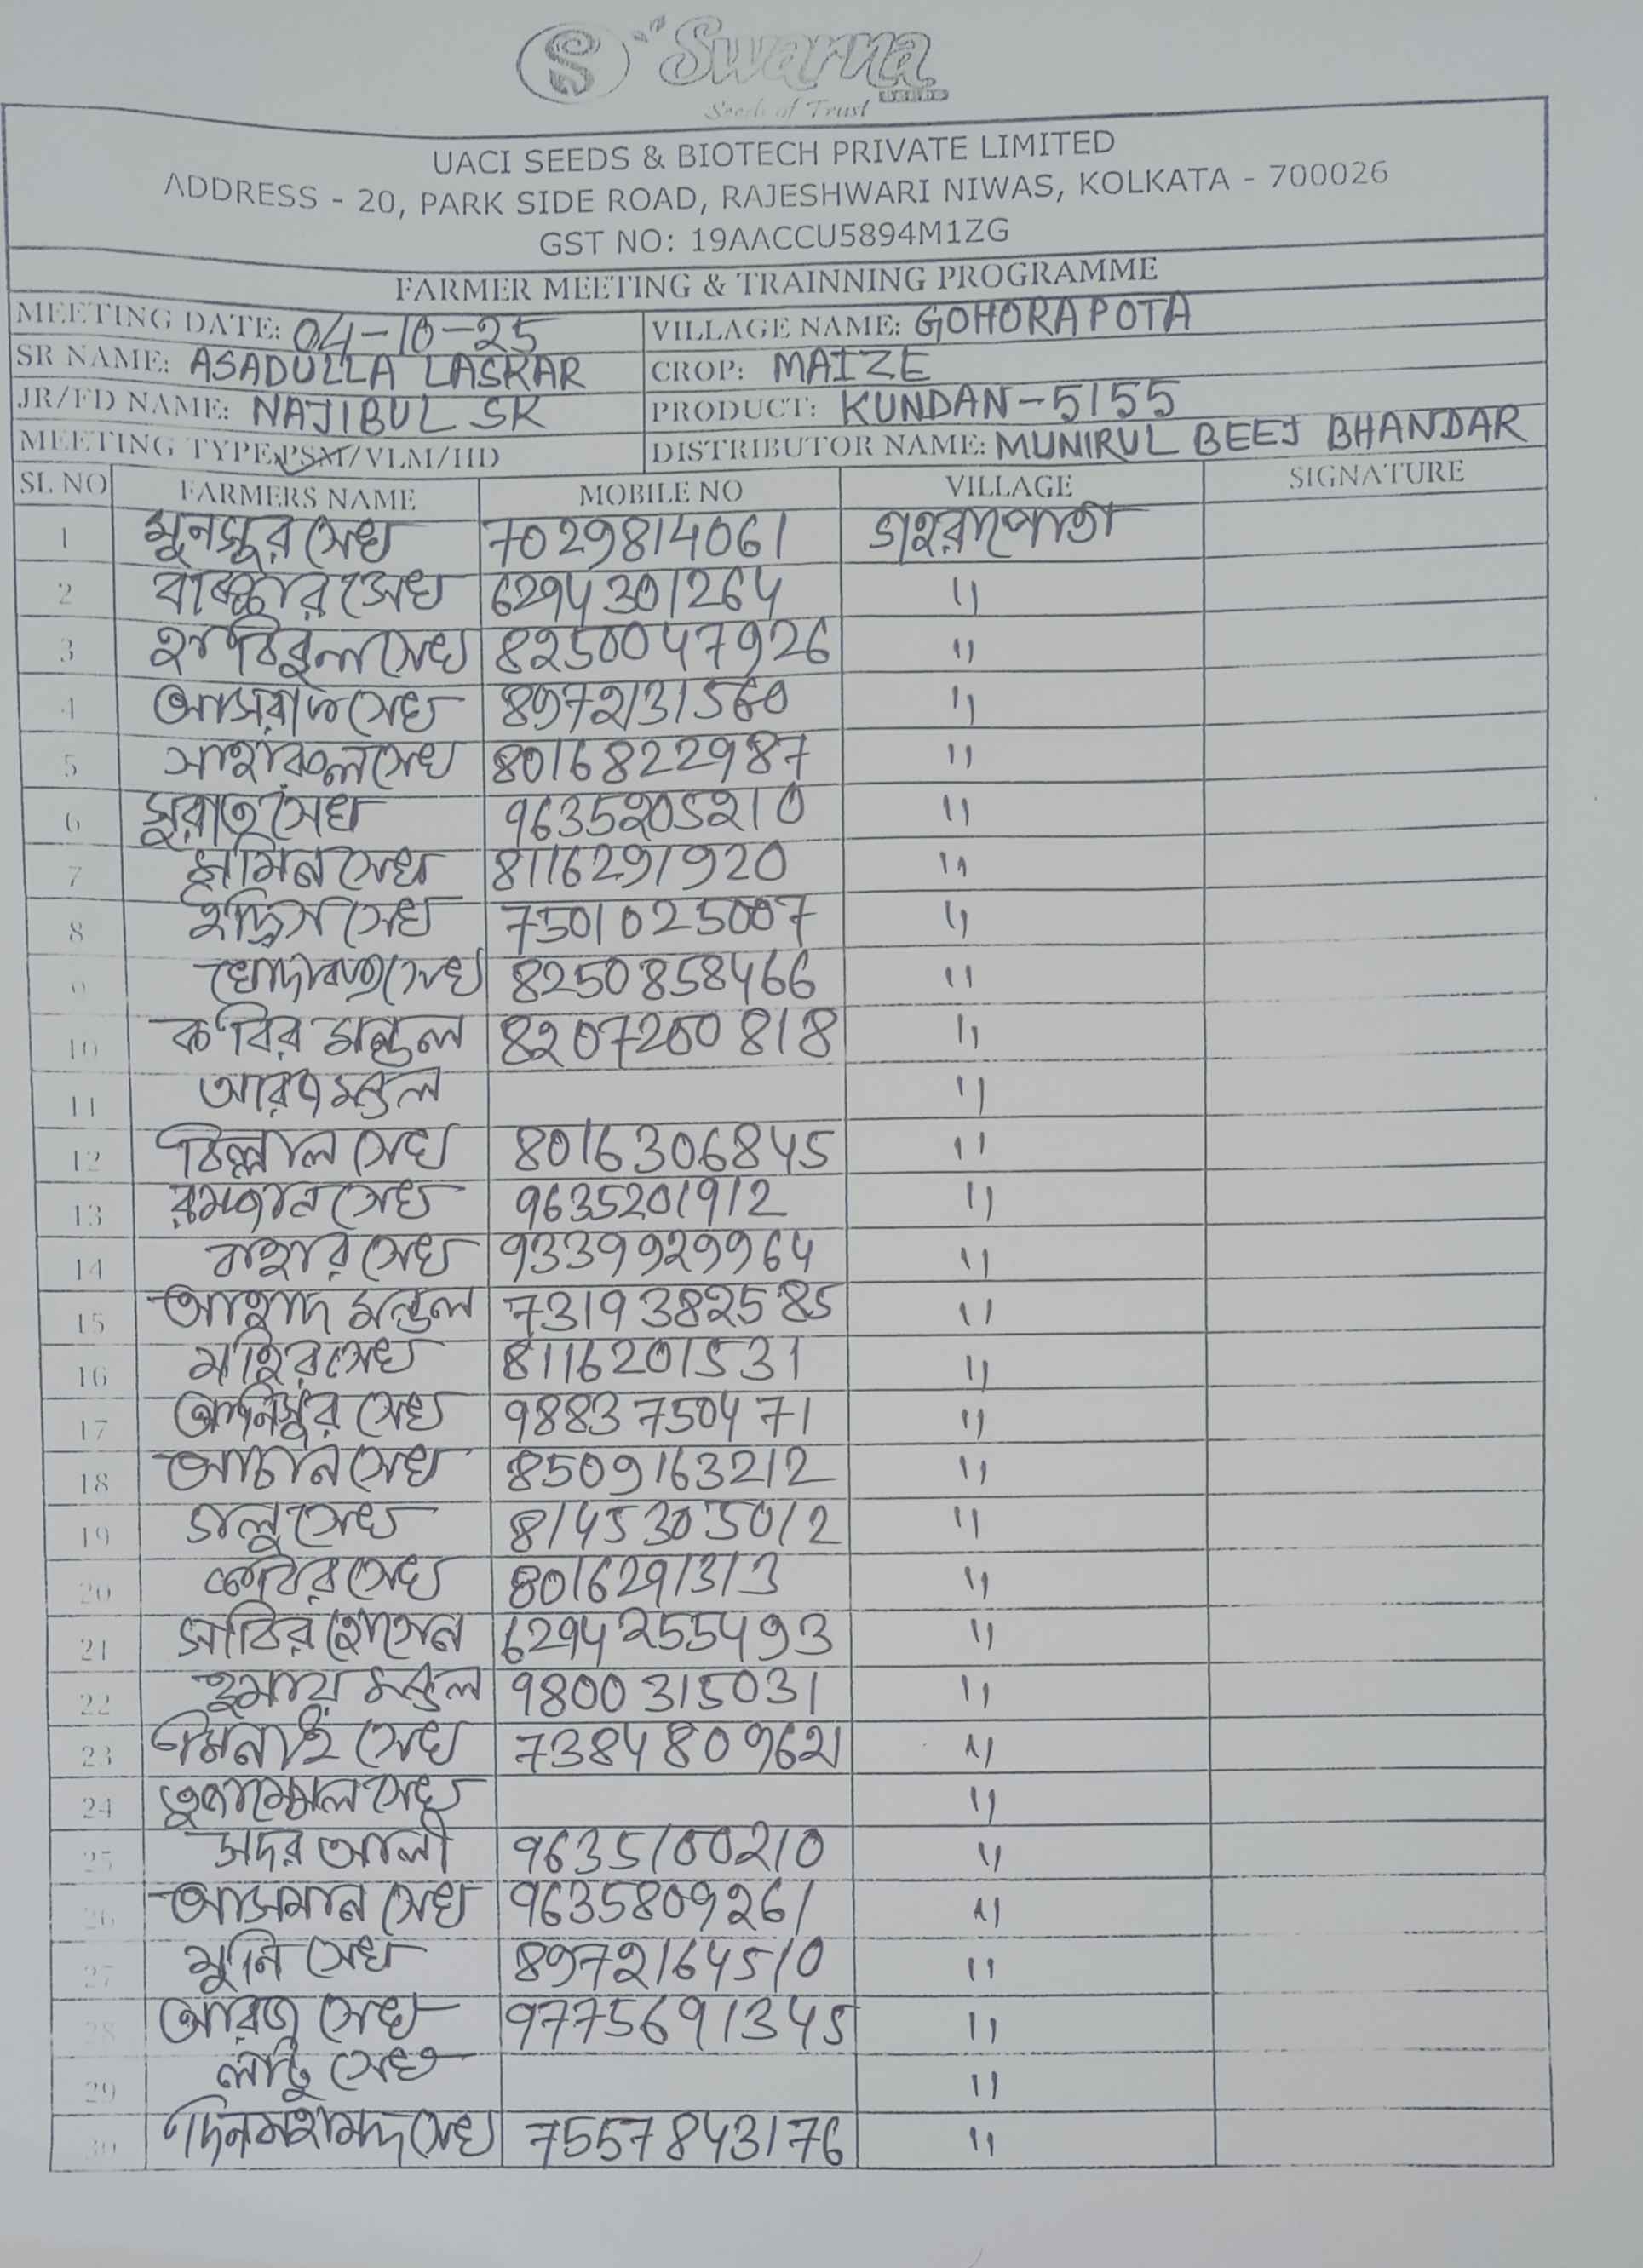 Swarna
SEEDS
Seeds of Trust
UACI SEEDS & BIOTECH PRIVATE LIMITED
ADDRESS - 20, PARK SIDE ROAD, RAJESHWARI NIWAS, KOLKATA - 700026
GST NO: 19AACCU5894M1ZG
FARMER MEETING & TRAINNING PROGRAMME
MEETING DATE: 04-10-25 VILLAGE NAME: GOHORAPOTA
SR NAME: ASADULLA LASKAR CROP: MAIZE
JR/FD NAME: NAJIBUL SK PRODUCT: KUNDAN-5155
MEETING TYPE: PSM/VLM/HD DISTRIBUTOR NAME: MUNIRUL BEEJ BHANDAR
SL NO FARMERS NAME MOBILE NO VILLAGE SIGNATURE
1 মুনসুর সেখ 7029814061 গহরাপোতা
2 সেখ 6294301264 "
3 হাবিবুল সেখ 8250047926 "
4 সেখ 8972131560 "
5 সেখ 8016822987 "
6 সেখ 9635205210 "
7 সেখ 8116291920 "
8 ইদ্রিস সেখ 7501025007 "
9 সেখ 8250858466 "
10 কবির মন্ডল 8207200818 "
11 মন্ডল "
12 বিল্লাল সেখ 8016306845 "
13 রমজান সেখ 9635201912 "
14 বাহার সেখ 9339929964 "
15 আহাদ মন্ডল 7319382585 "
16 মাহির সেখ 8116201531 "
17 সেখ 9883750471 "
18 সেখ 8509163212 "
19 সেখ 8145305012 "
20 কবির সেখ 8016291313 "
21 সাবির হোসেন 6294255493 "
22 মন্ডল 9800315031 "
23 মিনাই সেখ 7384809621 "
24 সেখ "
25 সদর আলী 9635100210 "
26 আসমান সেখ 9635809261 "
27 মুনি সেখ 8972164510 "
28 আরজু সেখ 9775691345 "
29 লাটু সেখ "
30 সেখ 7557843176 "